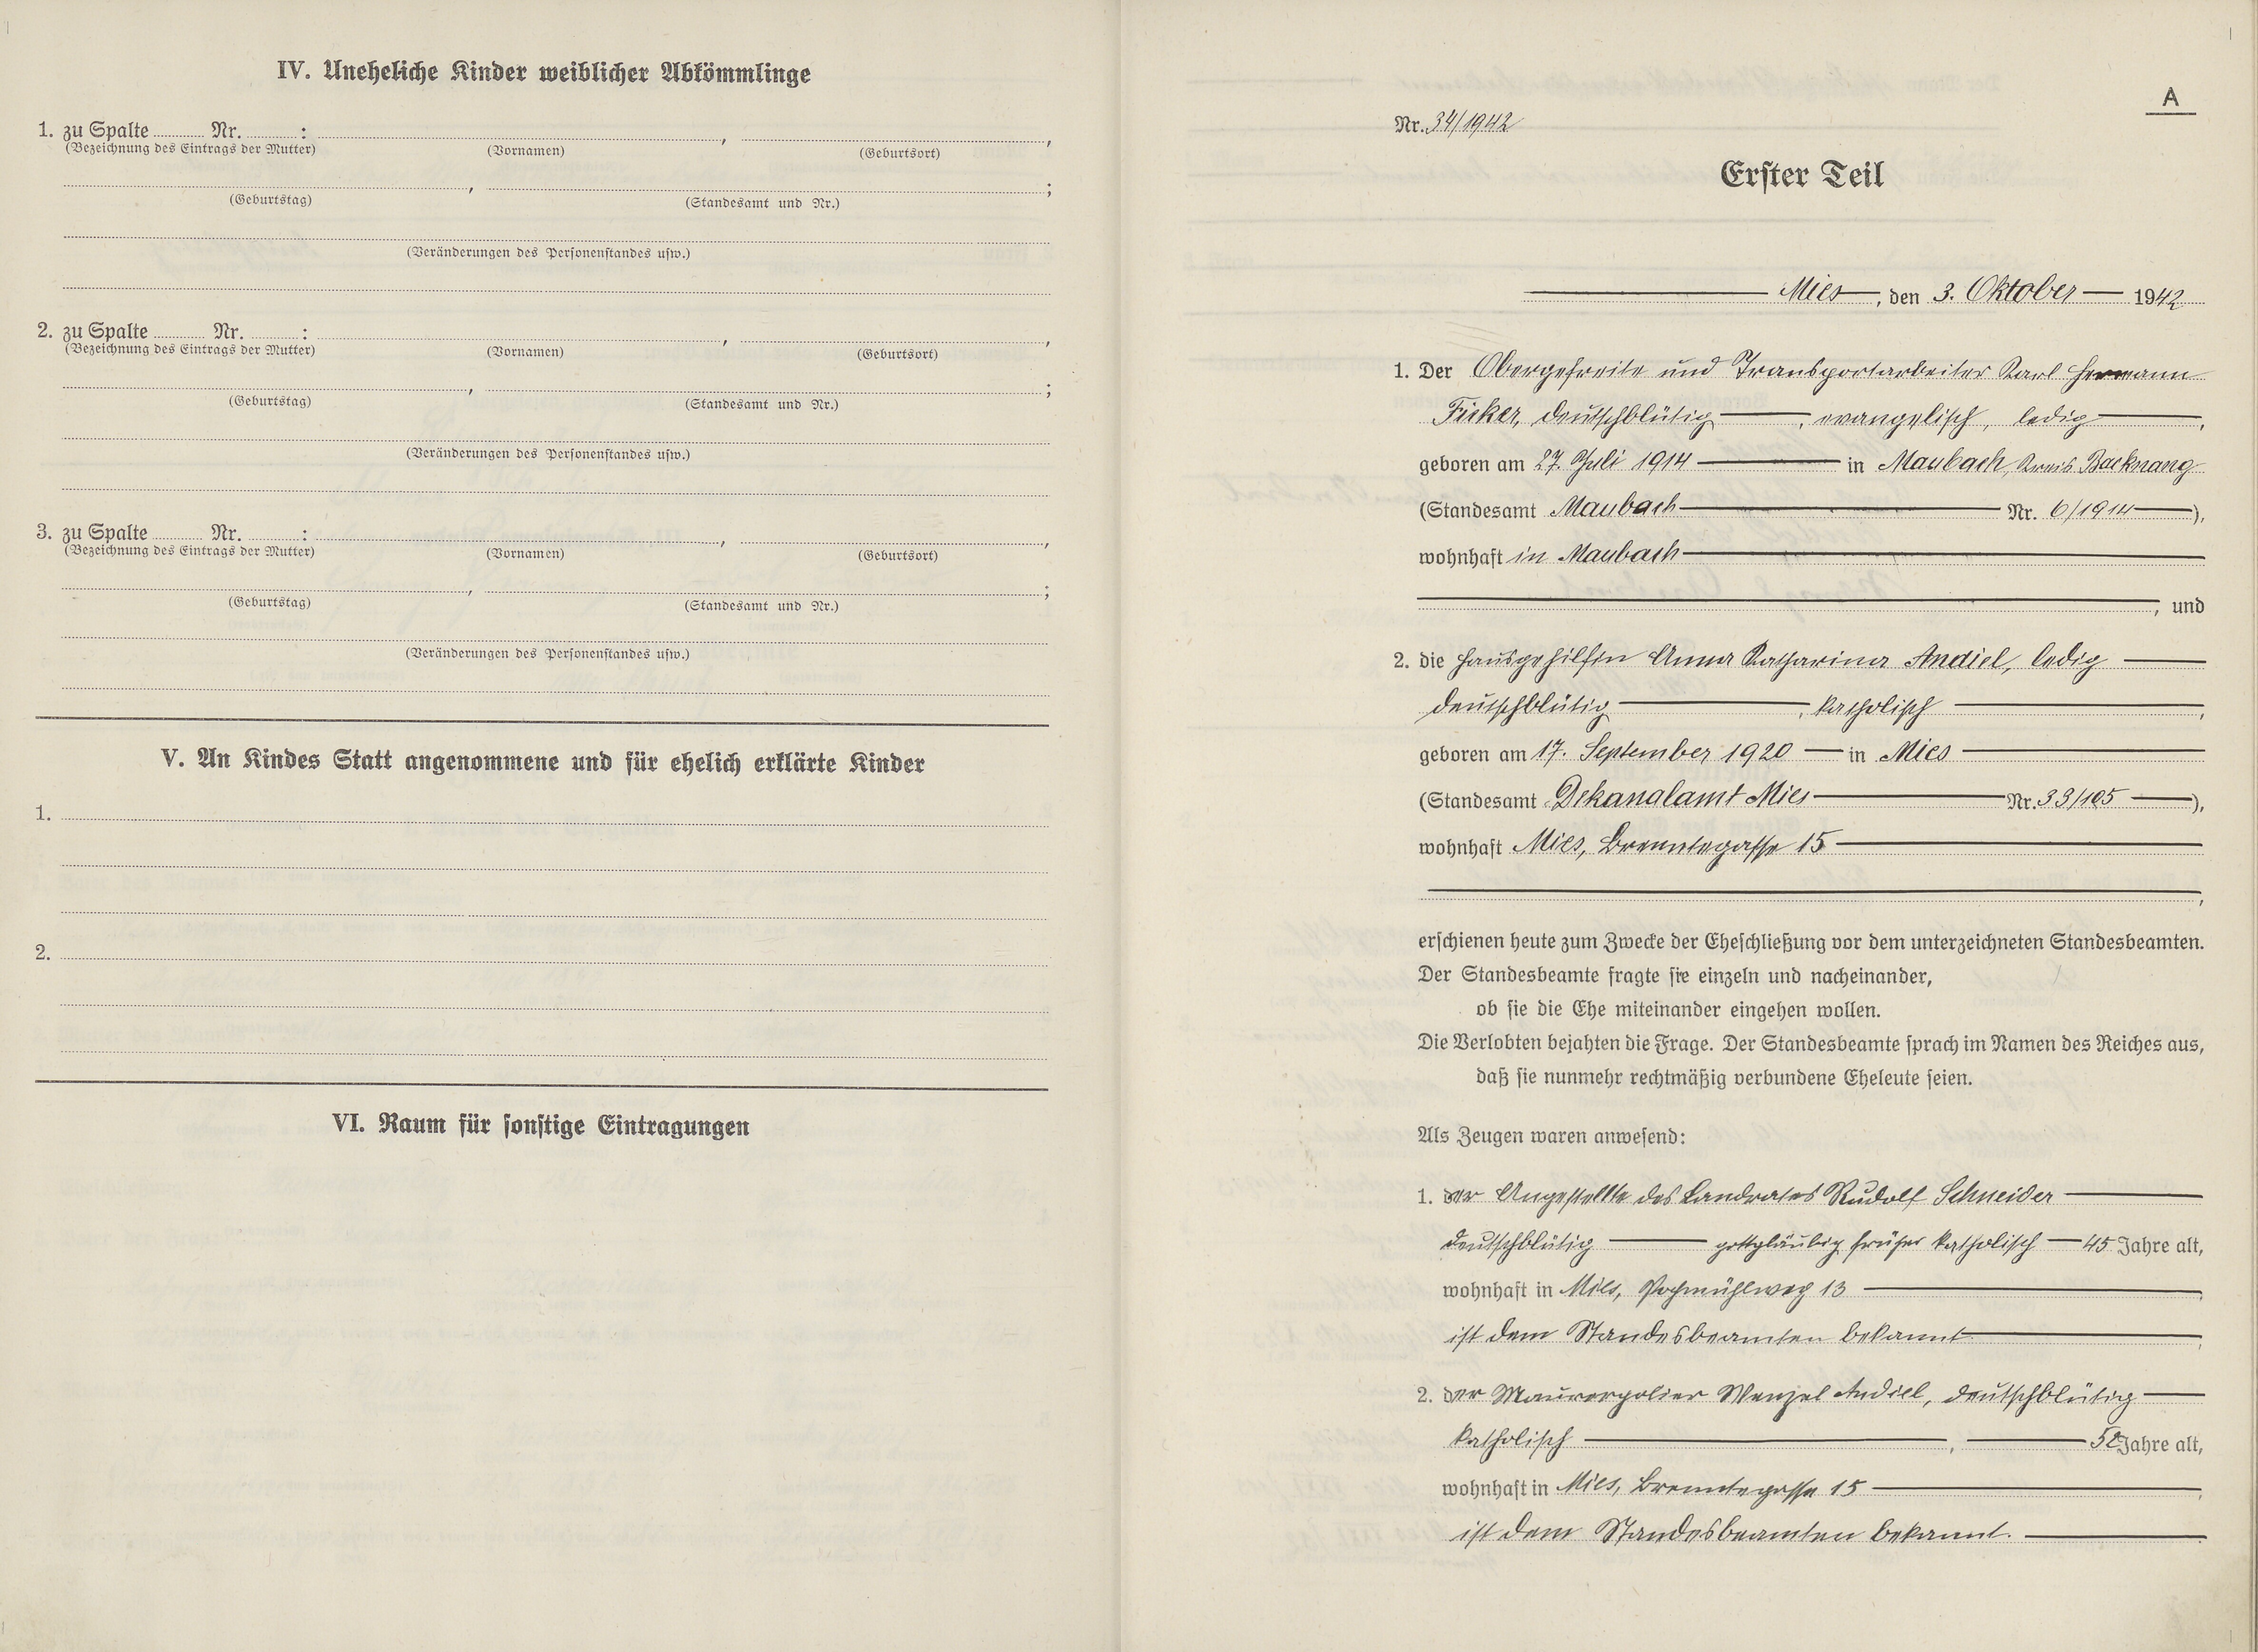 IV. Uneheliche Kinder weiblicher Abkömmlinge
1. zu Spalte Nr. : , ,
(Bezeichnung des Eintrags der Mutter) (Vornamen) (Geburtsort)
, ;
(Geburtstag) (Standesamt und Nr.)
(Veränderungen des Personenstandes usw.)
2. zu Spalte Nr. : , ,
(Bezeichnung des Eintrags der Mutter) (Vornamen) (Geburtsort)
, ;
(Geburtstag) (Standesamt und Nr.)
(Veränderungen des Personenstandes usw.)
3. zu Spalte Nr. : , ,
(Bezeichnung des Eintrags der Mutter) (Vornamen) (Geburtsort)
, ;
(Geburtstag) (Standesamt und Nr.)
(Veränderungen des Personenstandes usw.)
V. An Kindes Statt angenommene und für ehelich erklärte Kinder
1.
2.
VI. Raum für sonstige Eintragungen
A
Nr. 34/1942
Erster Teil
Mies, den 3. Oktober 1942
1. Der Obergefreite und Transportarbeiter Karl Hermann
Ficker, deutschblütig, evangelisch, ledig,
geboren am 27. Juli 1914 in Maubach, Kreis Backnang
(Standesamt Maubach Nr. 6/1914),
wohnhaft in Maubach
, und
2. die Hausgehilfin Anna Katharina Andiel, ledig
deutschblütig, katholisch,
geboren am 17. September 1920 in Mies
(Standesamt Dekanalamt Mies Nr. 33/105),
wohnhaft Mies, Brenntegasse 15
,
erschienen heute zum Zwecke der Eheschließung vor dem unterzeichneten Standesbeamten.
Der Standesbeamte fragte sie einzeln und nacheinander,
ob sie die Ehe miteinander eingehen wollen.
Die Verlobten bejahten die Frage. Der Standesbeamte sprach im Namen des Reiches aus,
daß sie nunmehr rechtmäßig verbundene Eheleute seien.
Als Zeugen waren anwesend:
1. der Angestellte des Landrates Rudolf Schneider
deutschblütig gottgläubig früher katholisch 45 Jahre alt,
wohnhaft in Mies, Pochmühlweg 13,
ist dem Standesbeamten bekannt,
2. der Maurerpolier Wenzel Andiel, deutschblütig
katholisch, 52 Jahre alt,
wohnhaft in Mies, Brenntegasse 15,
ist dem Standesbeamten bekannt.